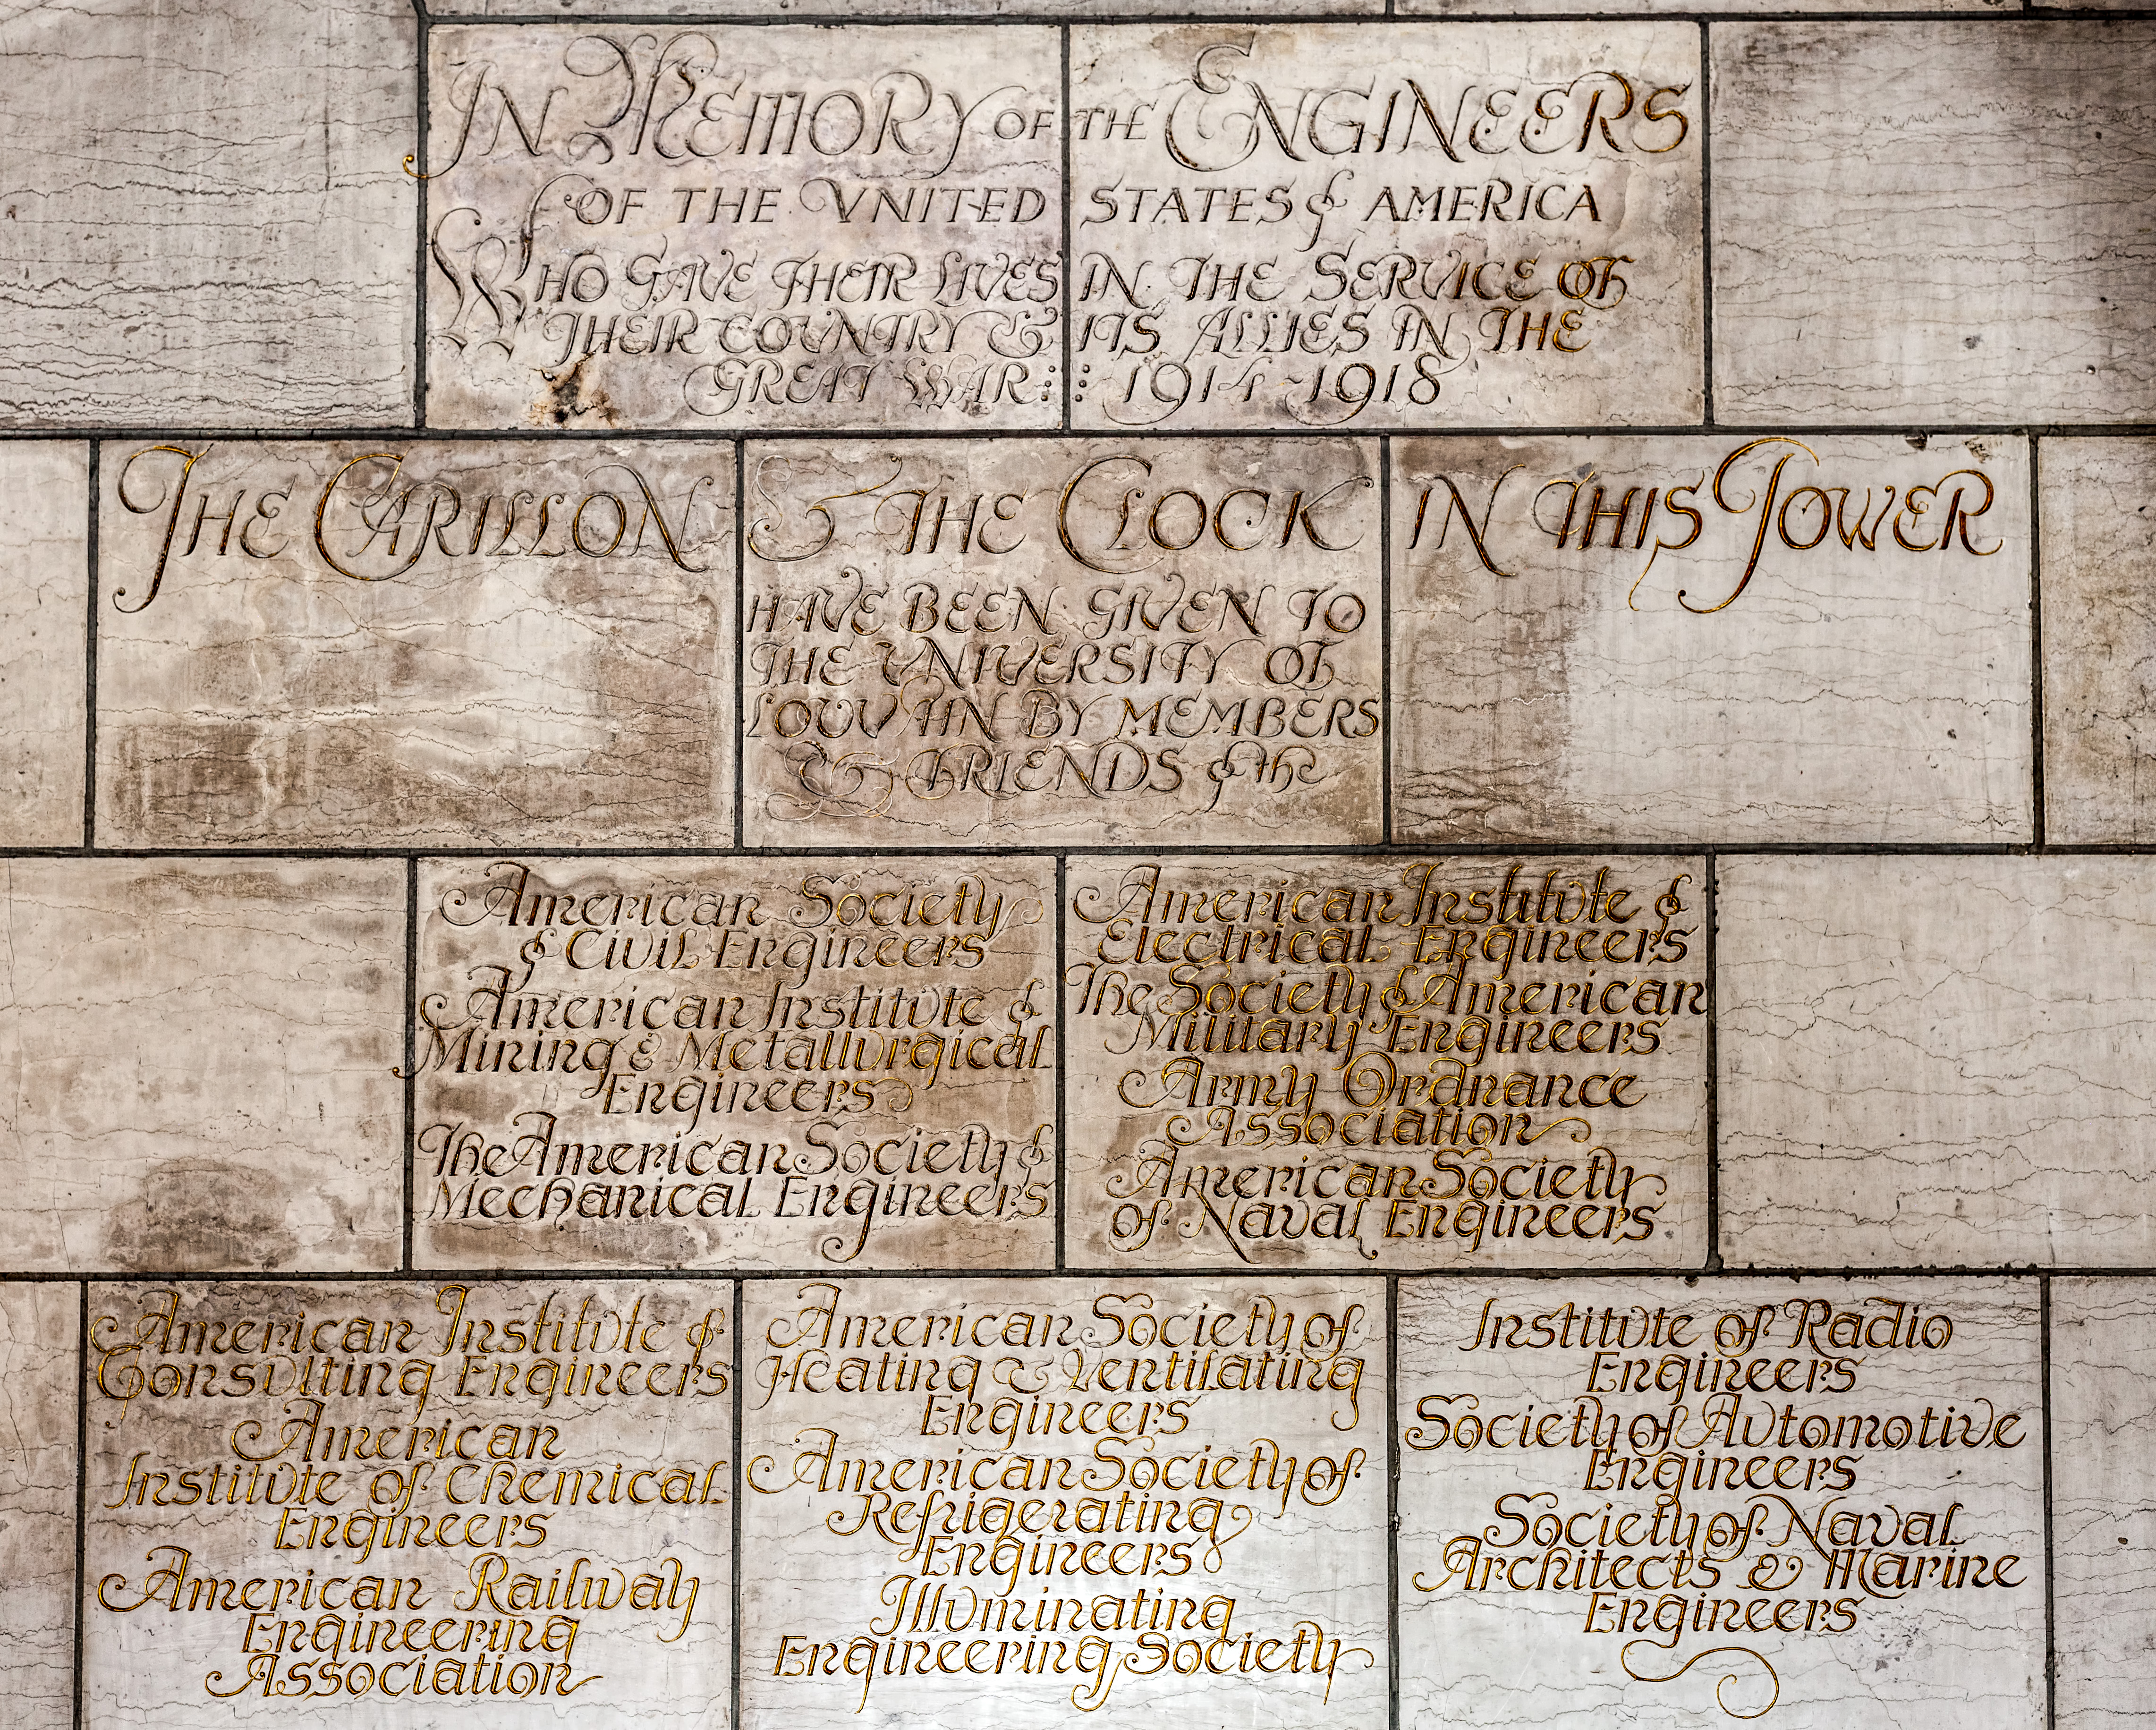 IN MEMORY OF THE ENGINEERS
OF THE VNITED STATES of AMERICA
WHO GAVE THEIR LIVES IN THE SERVICE OF
THEIR COVNTRY & ITS ALLIES IN THE
GREAT WAR : : 1914-1918
THE CARILLON & THE CLOCK IN THIS TOWER
HAVE BEEN GIVEN TO
THE VNIVERSITY OF
LOVVAIN BY MEMBERS
& FRIENDS of the
American Society
of Civil Engineers
American Institvte of
Mining & Metallvrgical
Engineers
The American Society of
Mechanical Engineers
American Institvte of
Electrical Engineers
The Society of American
Military Engineers
Army Ordnance
Association
American Society
of Naval Engineers
American Institvte of
Consvlting Engineers
American
Institvte of Chemical
Engineers
American Railway
Engineering
Association
American Society of
Heating & Ventilating
Engineers
American Society of
Refrigerating
Engineers
Illvminating
Engineering Society
Institvte of Radio
Engineers
Society of Avtomotive
Engineers
Society of Naval
Architects & Marine
Engineers